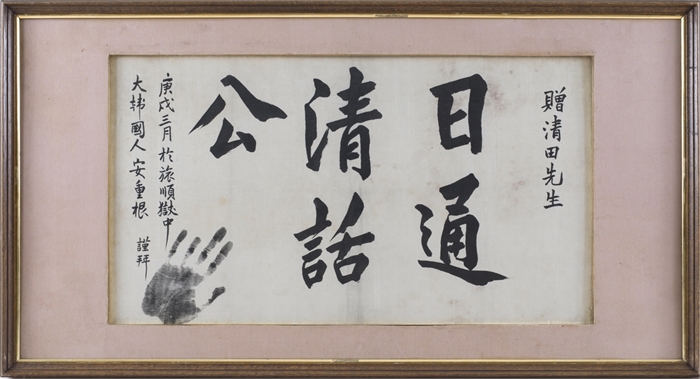 贈清田先生
日通
清話
公
庚戌三月於旅順獄中
大韓國人安重根 謹拜